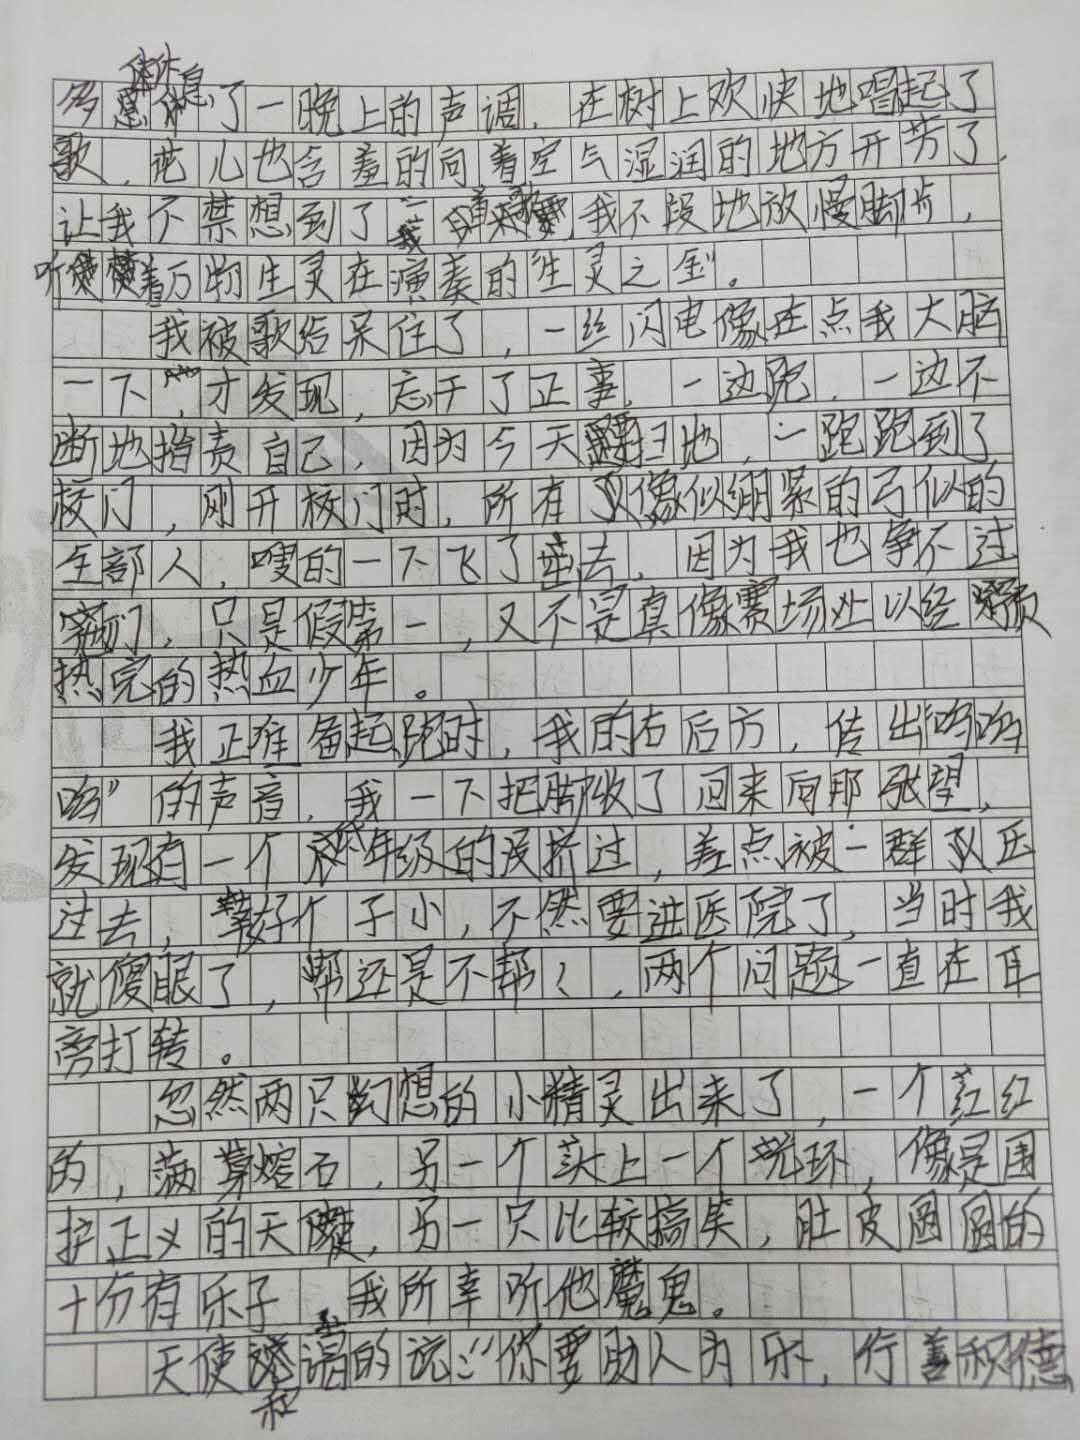 休息了一晚上的声调，在树上欢快地唱起了
歌，花儿也含羞的向着空气湿润的地方开芳了，
让我不禁想到了一首来，我不段地放慢脚步，
听着万物生灵在演奏的生灵之
我被歌给呆住了，一丝闪电像在点我大脑
一下，才发现，忘干了正事，一边跑，一边不
断地指责自己，因为今天要扫地，一跑跑到了
校门，刚开校门时，所有像似绷紧的弓似的
全部人，嗖的一下飞了去，因为我也争不过
们，只是假第一，又不是真像赛场处以经预
热完的热血少年。
我正准备起跑时，我的右后方，传出“呜呜
呜”的声音，我一下把脚收了回来向那张望，
发现有一个低年级的没挤过，差点被一群压
过去，幸好个子小，不然要进医院了，当时我
就傻眼了，帮还是不帮？，两个问题一直在耳
旁打转。
忽然两只幻想的小精灵出来了，一个红红
的，满身熔石，另一个头上一个光环，像是围
护正义的天使，另一只比较搞笑，肚皮圆圆的
十分有乐子，我所幸听他魔鬼。
天使和谐的说：“你要助人为乐，行善积德